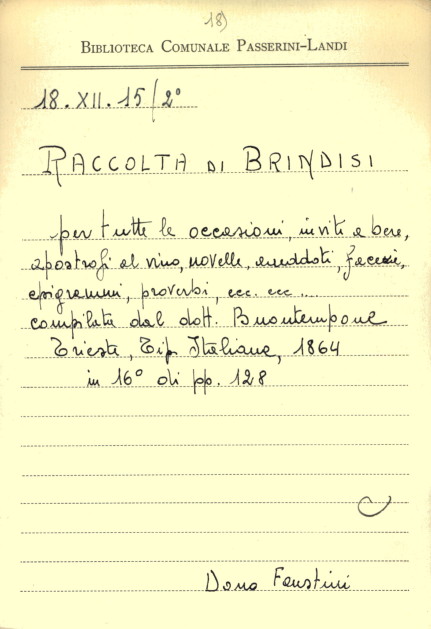 18)
BIBLIOTECA COMUNALE PASSERINI-LANDI
18.XII.15/2°
RACCOLTA DI BRINDISI
per tutte le occasioni, inviti a bere,
apostrofi al vino, novelle, aneddoti, facezie,
epigrammi, proverbi, ecc. ecc....
compilata dal dott. Buontempone
Trieste, Tip. Italiana, 1864
in 16° di pp. 128
Dono Faustini